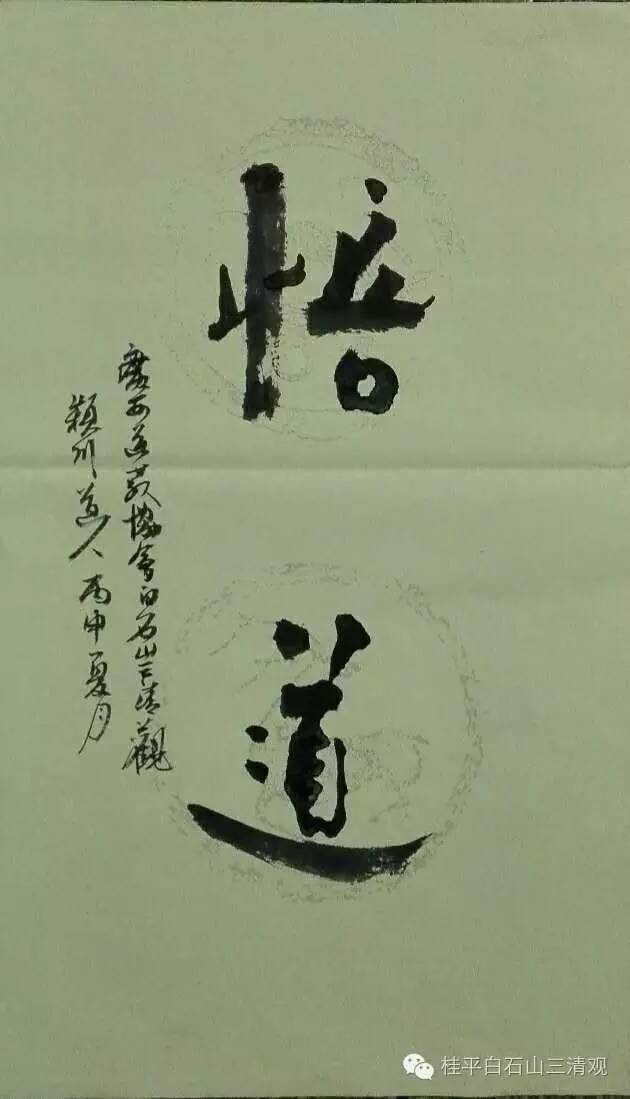 悟道
廣西道教協會白石山三清觀
颖川道人丙申夏月
桂平白石山三清观